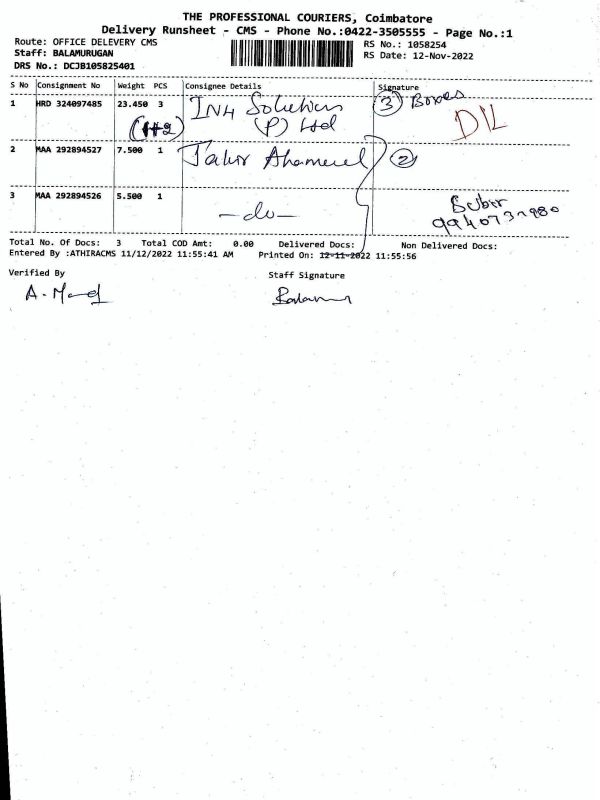 THE PROFESSIONAL COURIERS, Coimbatore
Delivery Runsheet - CMS - Phone No.:0422-3505555 - Page No.:1
Route: OFFICE DELEVERY CMS
RS No.: 1058254
Staff: BALAMURUGAN
RS Date: 12-Nov-2022
DRS No.: DCJB105825401
S No Consignment No Weight PCS Consignee Details Signature
1 HRD 324097485 23.450 3 IN4 Solutions ③ Boxes
(P) Ltd DIL
2 MAA 292894527 7.500 1 ②
3 MAA 292894526 5.500 1 -do-
Total No. Of Docs: 3 Total COD Amt: 0.00 Delivered Docs: Non Delivered Docs:
Entered By :ATHIRACMS 11/12/2022 11:55:41 AM Printed On: 12-11-2022 11:55:56
Verified By Staff Signature